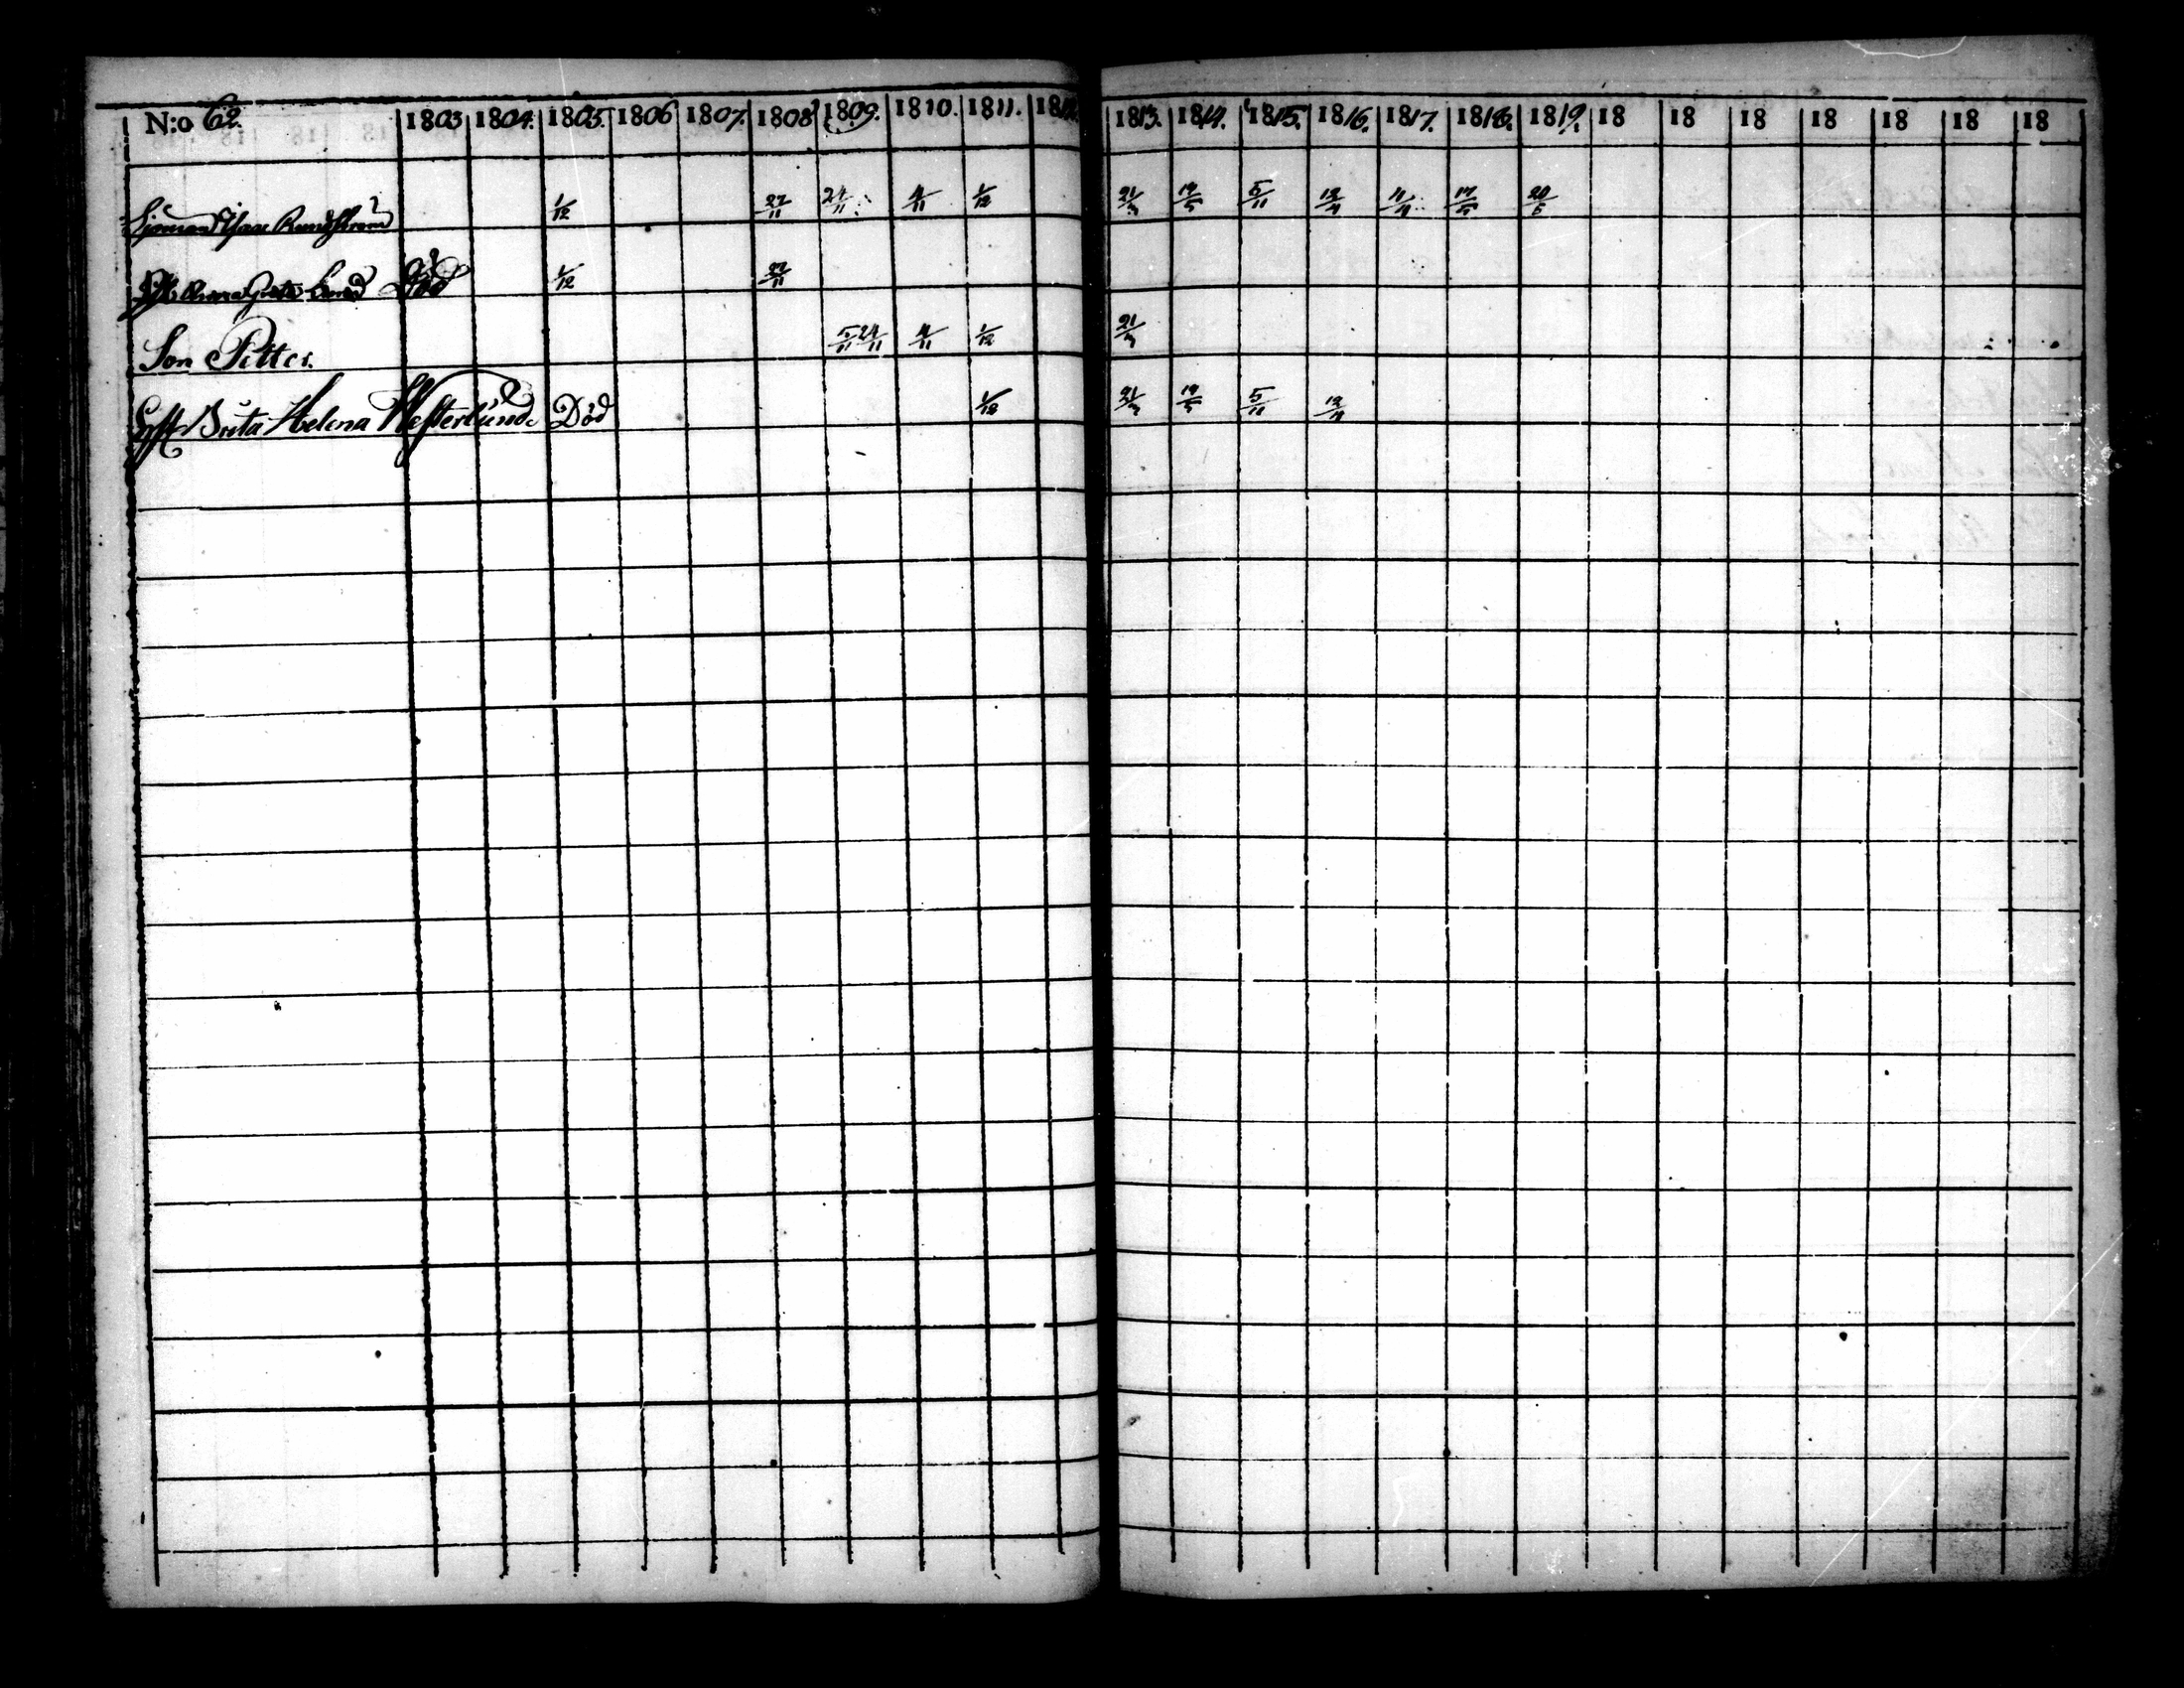 N:o 62. 1803 1804. 1805. 1806 1807. 1808 1809. 1810. 1811. 1812. 1813. 1814. 1815. 1816. 1817. 1818. 1819. 18 18 18 18 18 18 18
Sjöman Isaac Rundström 1/12 27/11 24/11 4/11 1/12 21/3 5/11 11/4 20/6
Anna Greta Lund Död 1/12 27/11
Son Petter. 5/11 24/11 4/11 1/12 21/3
Gift Brita Helena Westerlund. Död 1/12 21/3 5/11